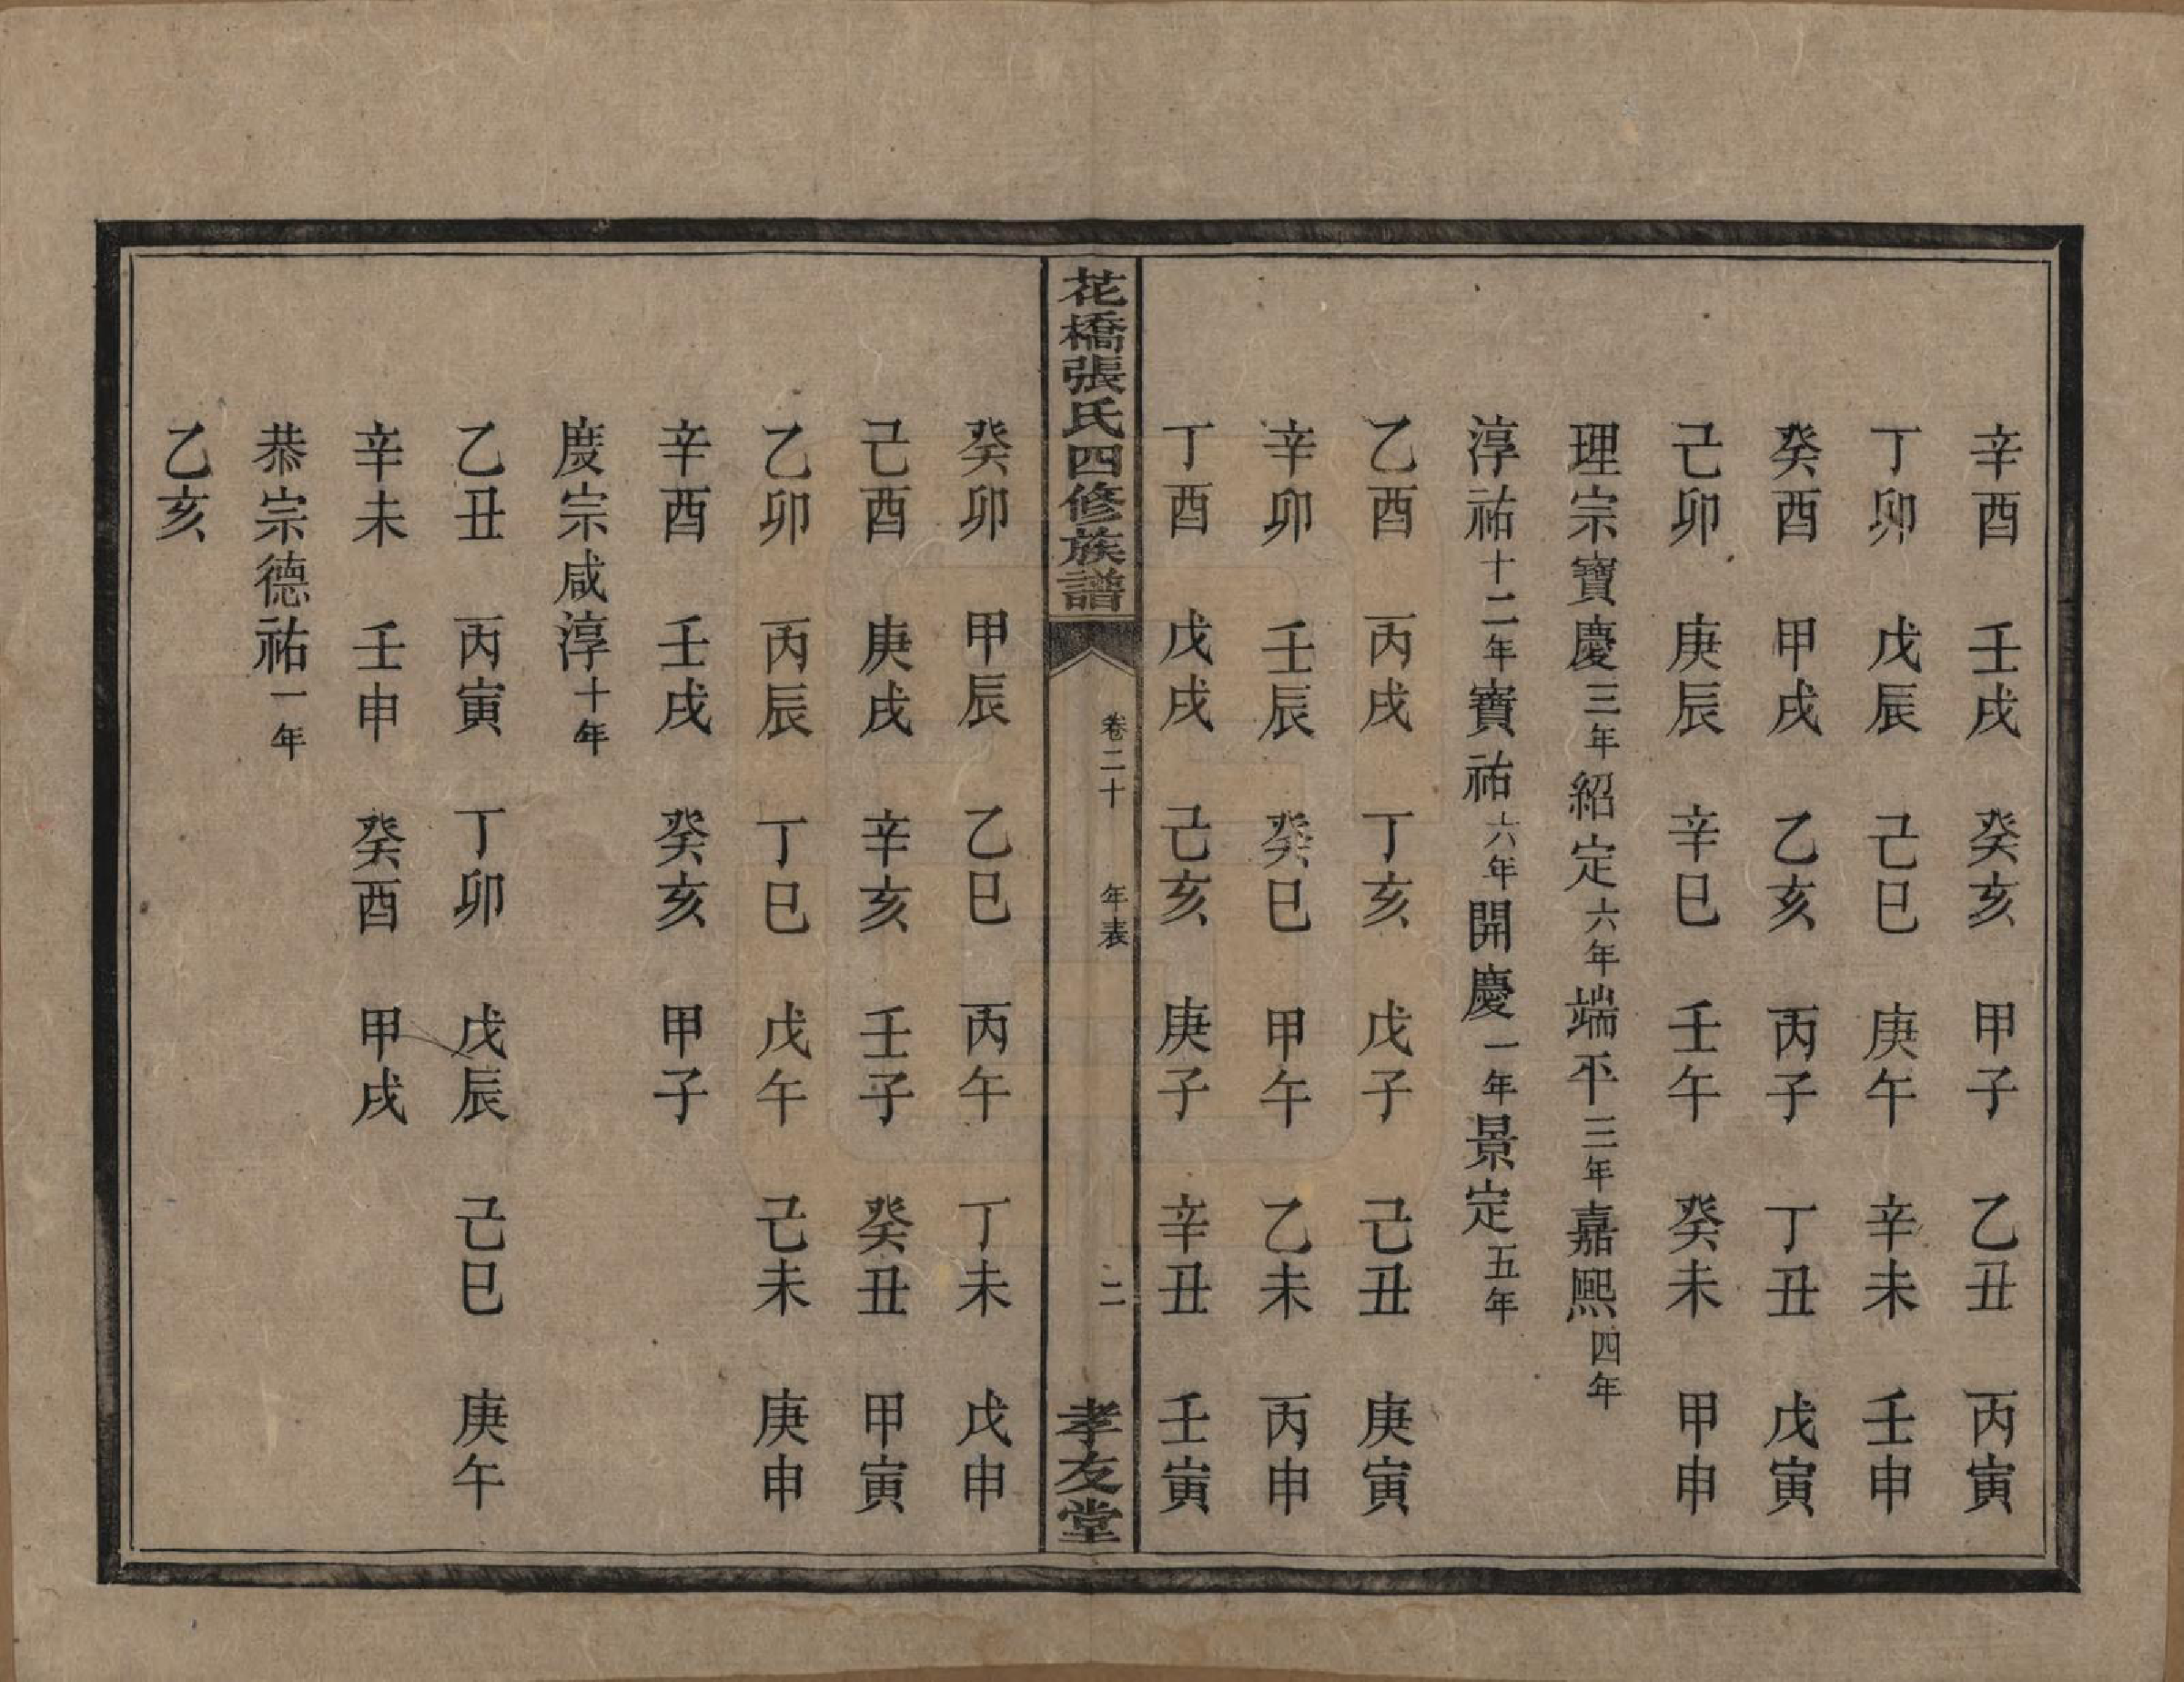 辛酉　壬戌　癸亥　甲子　乙丑　丙寅
丁卯　戊辰　己巳　庚午　辛未　壬申
癸酉　甲戌　乙亥　丙子　丁丑　戊寅
己卯　庚辰　辛巳　壬午　癸未　甲申
理宗寶慶三年紹定六年端平三年嘉熙四年
淳祐十二年寶祐六年開慶一年景定五年
乙酉　丙戌　丁亥　戊子　己丑　庚寅
辛卯　壬辰　癸巳　甲午　乙未　丙申
丁酉　戊戌　己亥　庚子　辛丑　壬寅
花橋張氏四修族譜　卷二十　年表　二　孝友堂
癸卯　甲辰　乙巳　丙午　丁未　戊申
己酉　庚戌　辛亥　壬子　癸丑　甲寅
乙卯　丙辰　丁巳　戊午　己未　庚申
辛酉　壬戌　癸亥　甲子
度宗咸淳十年
乙丑　丙寅　丁卯　戊辰　己巳　庚午
辛未　壬申　癸酉　甲戌
恭宗德祐一年
乙亥